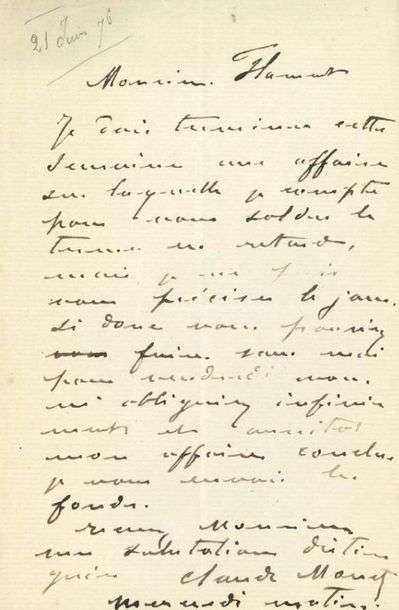 21 Juin 76
Monsieur. Flament
Je dois terminer cette
semaine une affaire
sur laquelle je compte
pour vous solder le
terme en retard,
mais je ne puis
vous préciser le jour.
Si donc vous pouviez
faire sans moi
pour vendredi vous
m'obligeriez infini
ment et aussitot
mon affaire conclue
je vous envoie les
fonds.
Recevez Monsieur
mes salutations distin
guées Claude Monet
mercredi matin.